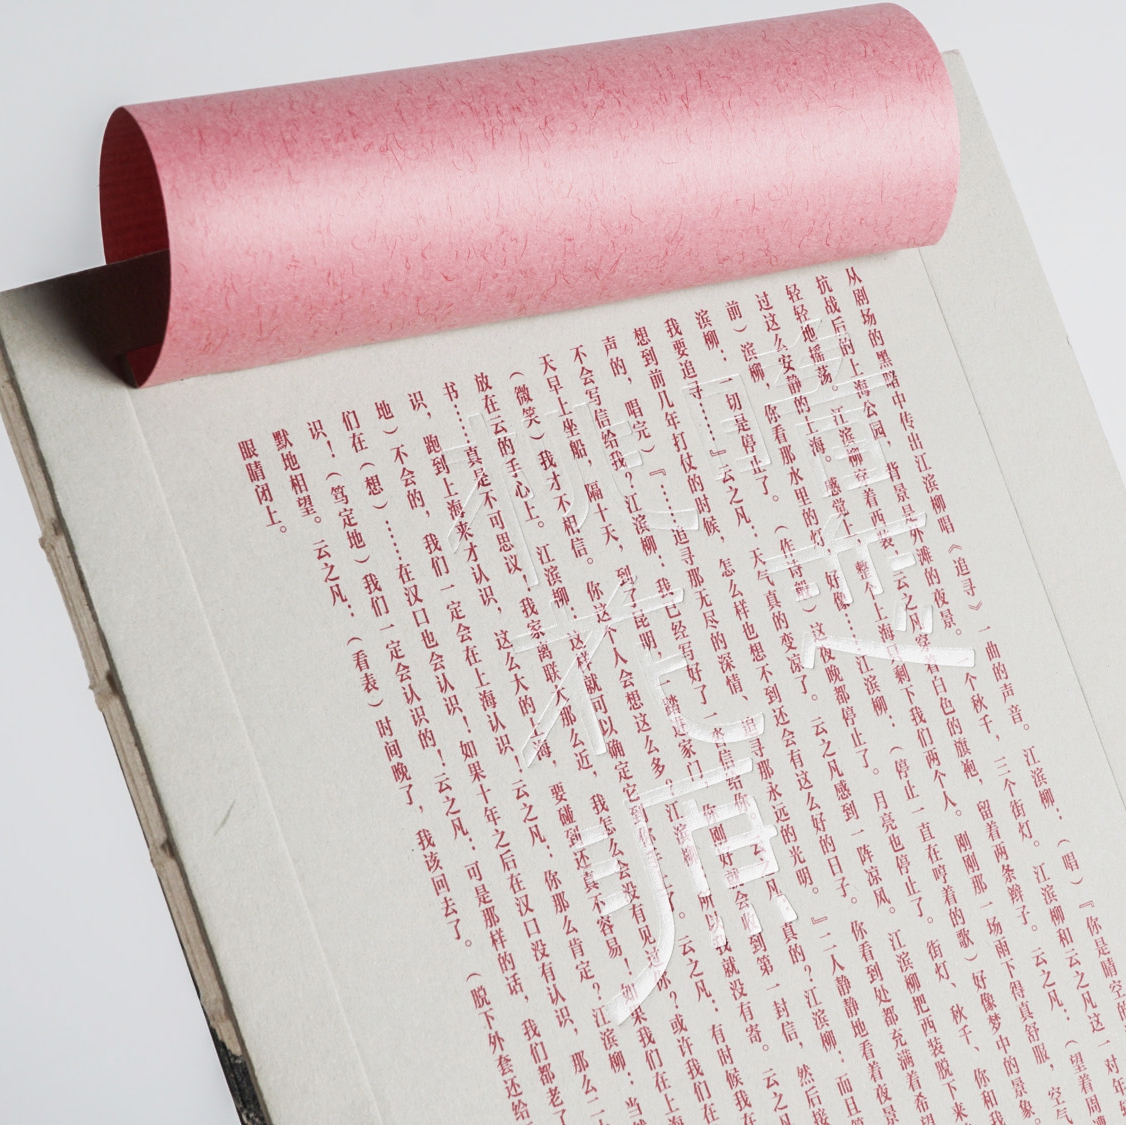 暗恋
桃花源
从剧场的黑暗中传出江滨柳唱《追寻》一曲的声音。江滨柳：（唱）『你是晴空的
抗战后的上海公园，背景是外滩的夜景。一个秋千，三个街灯。江滨柳和云之凡这一对年轻
轻轻地摇荡。江滨柳穿着西装，云之凡穿着白色的旗袍，留着两条辫子。云之凡：（望着周
过这么安静的上海。感觉整个上海只剩下我们两个人。刚刚那一场雨下得真舒服，空气
前）滨柳，你看那水里的灯，好像……江滨柳：（停止一直在哼着的歌）好像梦中的景象。
滨柳：一切是停止了。这夜晚都停止了。月亮也停止了。街灯、秋千、你和我
我要追寻……』云之凡：天气真的变凉了。云之凡感到一阵凉风。江滨柳把西装脱下来
想到前几年打仗的时候，怎么样也想不到还会有这么好的日子。你看到处都充满着希望
声的，唱完）『……追寻那无尽的深情、追寻那永远的光明。』二人静静地看着夜景
不会写信给我？江滨柳：我已经写好了一沓信给你。云之凡：真的？江滨柳：而且
天早上坐船，隔十天，到了昆明，踏进家门，你刚好就会收到第一封信，然后接
（微笑）我才不相信。你这个人会想这么多？江滨柳：所以我就没有寄。云之凡
放在云的手心上。江滨柳：这样就可以确定它到你手上了。云之凡：有时候我在
书……真是不可思议，我家离联大那么近，我怎么会没有见过你？或许我们在
识，跑到上海来才认识，这么大的上海，要碰到还真不容易！如果我们在上海
地）不会的，我们一定会在上海认识！云之凡：你那么肯定？江滨柳：当
们在（想）……在汉口也会认识！如果十年之后在汉口没有认识，那么二
识！（笃定地）我们一定会认识的！云之凡：可是那样的话，我们都老了
默地相望。云之凡：（看表）时间晚了，我该回去了。（脱下外套还给
眼睛闭上。